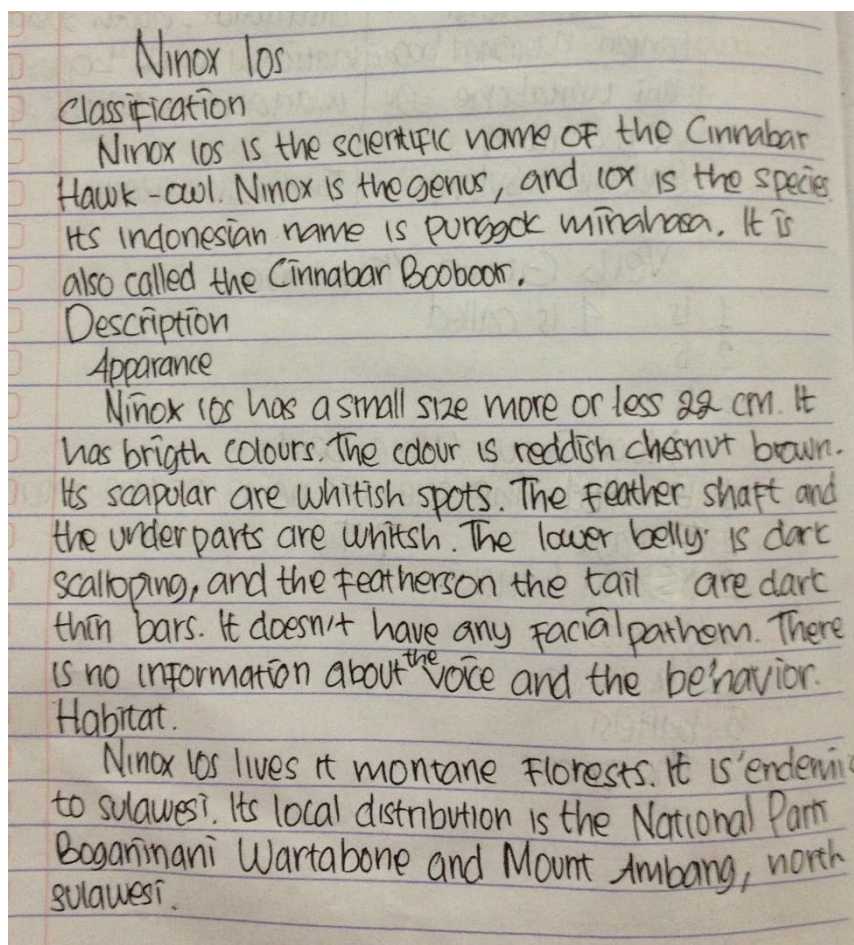 Ninox Ios
Classification
Ninox Ios is the scientific name of the Cinnabar
Hawk-owl. Ninox is the genus, and iox is the species
Its Indonesian name is punggok minahasa. It is
also called the Cinnabar Boobook.
Description
Apparance
Ninox ios has a small size more or less 22 cm. It
has brigth colours. The colour is reddish chesnut brown.
Its scapular are whitish spots. The feather shaft and
the underparts are whitsh. The lower belly is dark
scalloping, and the featherson the tail are dark
thin bars. It doesn't have any facial pathern. There
is no information about the voice and the behavior.
Habitat.
Ninox ios lives it montane florests. It is endemic
to sulawesi. Its local distribution is the National Park
Boganinani Wartabone and Mount Ambang, north
sulawesi.